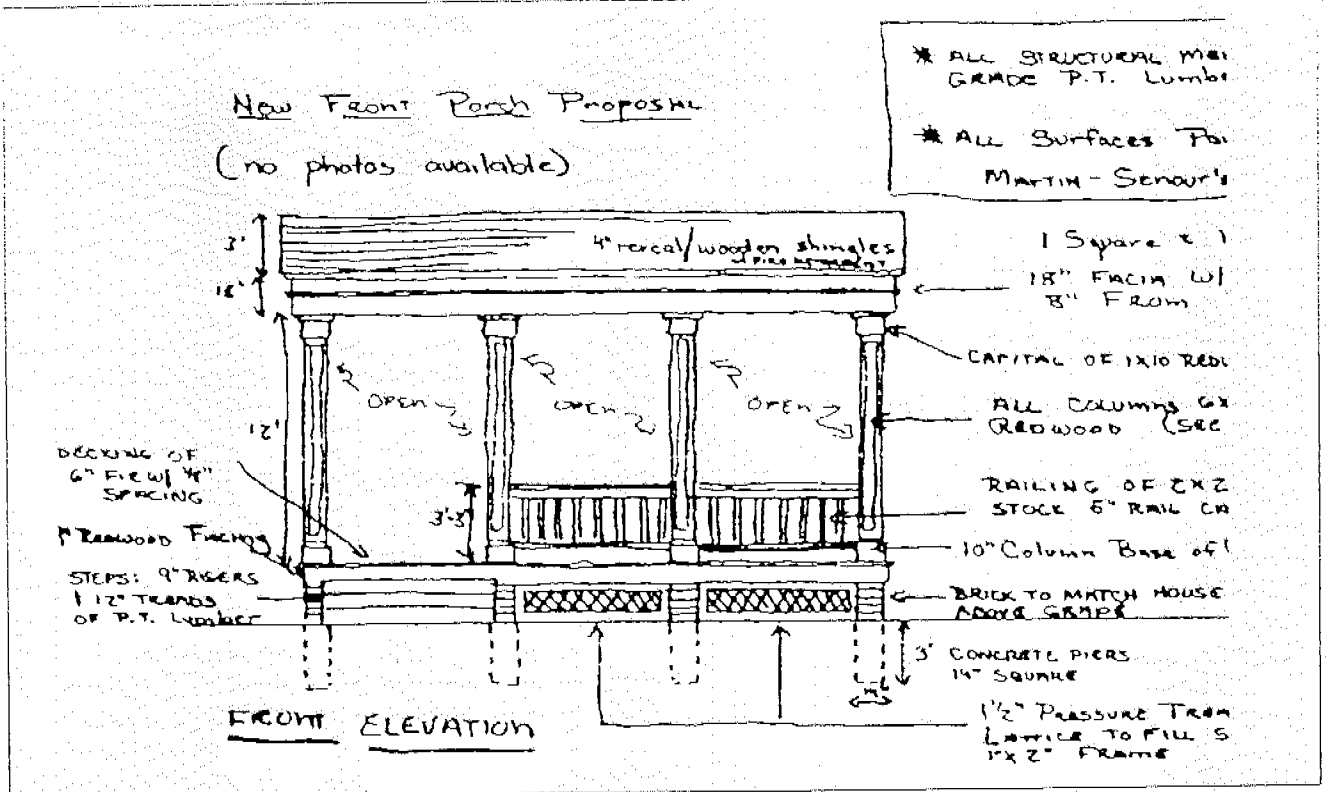 New Front Porch Proposal
(no photos available)
* ALL STRUCTURAL
GRADE P.T. Lumber
* ALL Surfaces
MARTIN-SENOUR'S
3'
4" reveal/wooden shingles
18"
1 Square
18" FACIA W/
8" FROM
CAPITAL OF 1X10
OPEN
OPEN
OPEN
ALL COLUMNS
REDWOOD (SEE
12'
DECKING OF
6" FIR W/ 1/8"
SPACING
3'-3"
RAILING OF 2X2
STOCK 6" RAIL
1" REDWOOD FACING
10" Column Base of
STEPS: 9" RISERS
12" TREADS
OF P.T. Lumber
BRICK TO MATCH HOUSE
ABOVE GRADE
3' CONCRETE PIERS
14" SQUARE
FRONT ELEVATION
1 1/2" PRESSURE
LATTICE TO FILL
1" x 2" FRAME